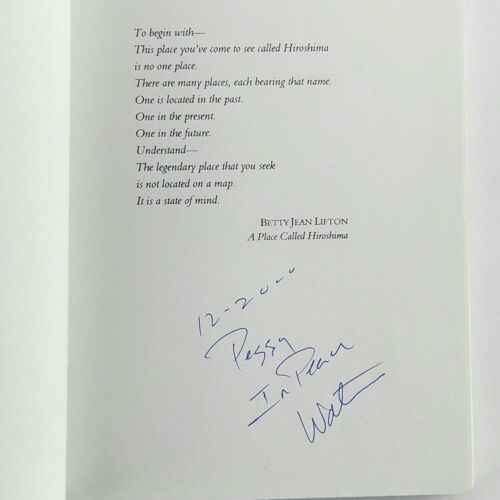 To begin with—
This place you've come to see called Hiroshima
is no one place.
There are many places, each bearing that name.
One is located in the past.
One in the present.
One in the future.
Understand—
The legendary place that you seek
is not located on a map.
It is a state of mind.
BETTY JEAN LIFTON
A Place Called Hiroshima
12-2000
Peggy
In Peace